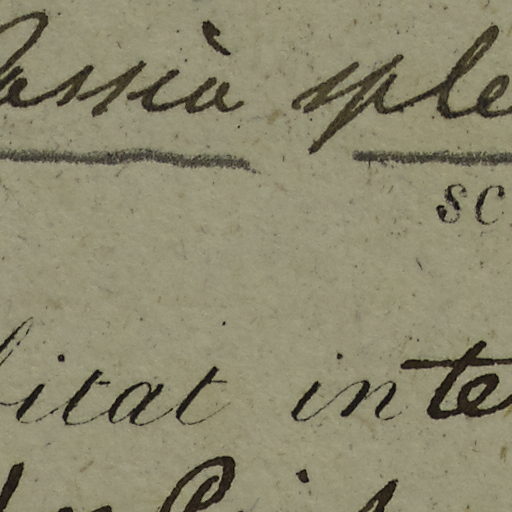 Cassia sple
sc
bitat inte